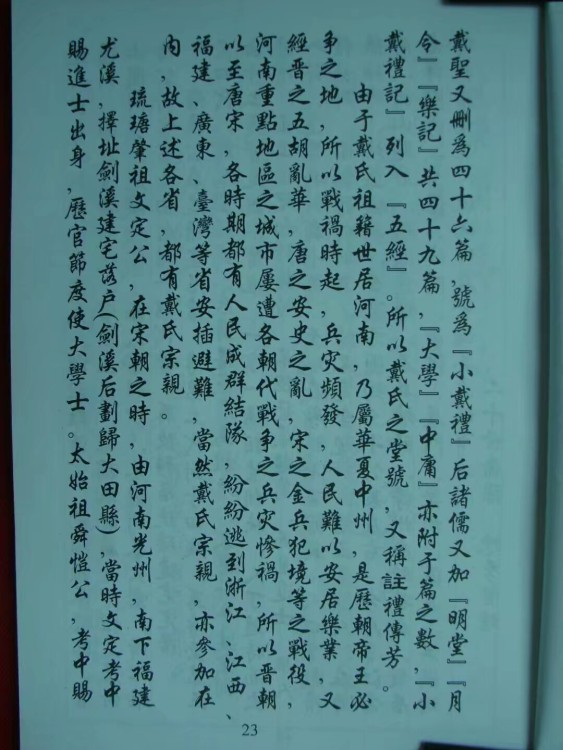 戴聖又刪為四十六篇，號為『小戴禮』后諸儒又加『明堂』『月
令』『樂記』共四十九篇，『大學』『中庸』亦附于篇之數，『小
戴禮記』列入『五經』。所以戴氏之堂號，又稱註禮傳芳。
由于戴氏祖籍世居河南，乃屬華夏中州，是歷朝帝王必
争之地，所以戰禍時起，兵灾頻發，人民難以安居樂業，又
經晋之五胡亂華，唐之安史之亂，宋之金兵犯境等之戰役，
河南重點地區之城市屢遭各朝代戰争之兵灾慘禍，所以晋朝
以至唐宋，各時期都有人民成群結隊，紛紛逃到浙江、江西、
福建、廣東、臺灣等省安插避難，當然戴氏宗親，亦參加在
内，故上述各省，都有戴氏宗親。
琉瑭肇祖文定公，在宋朝之時，由河南光州，南下福建
尤溪，擇址劍溪建宅落户（劍溪后劃歸大田縣），當時文定考中
賜進士出身，歷官節度使大學士。太始祖舜愷公，考中賜
23